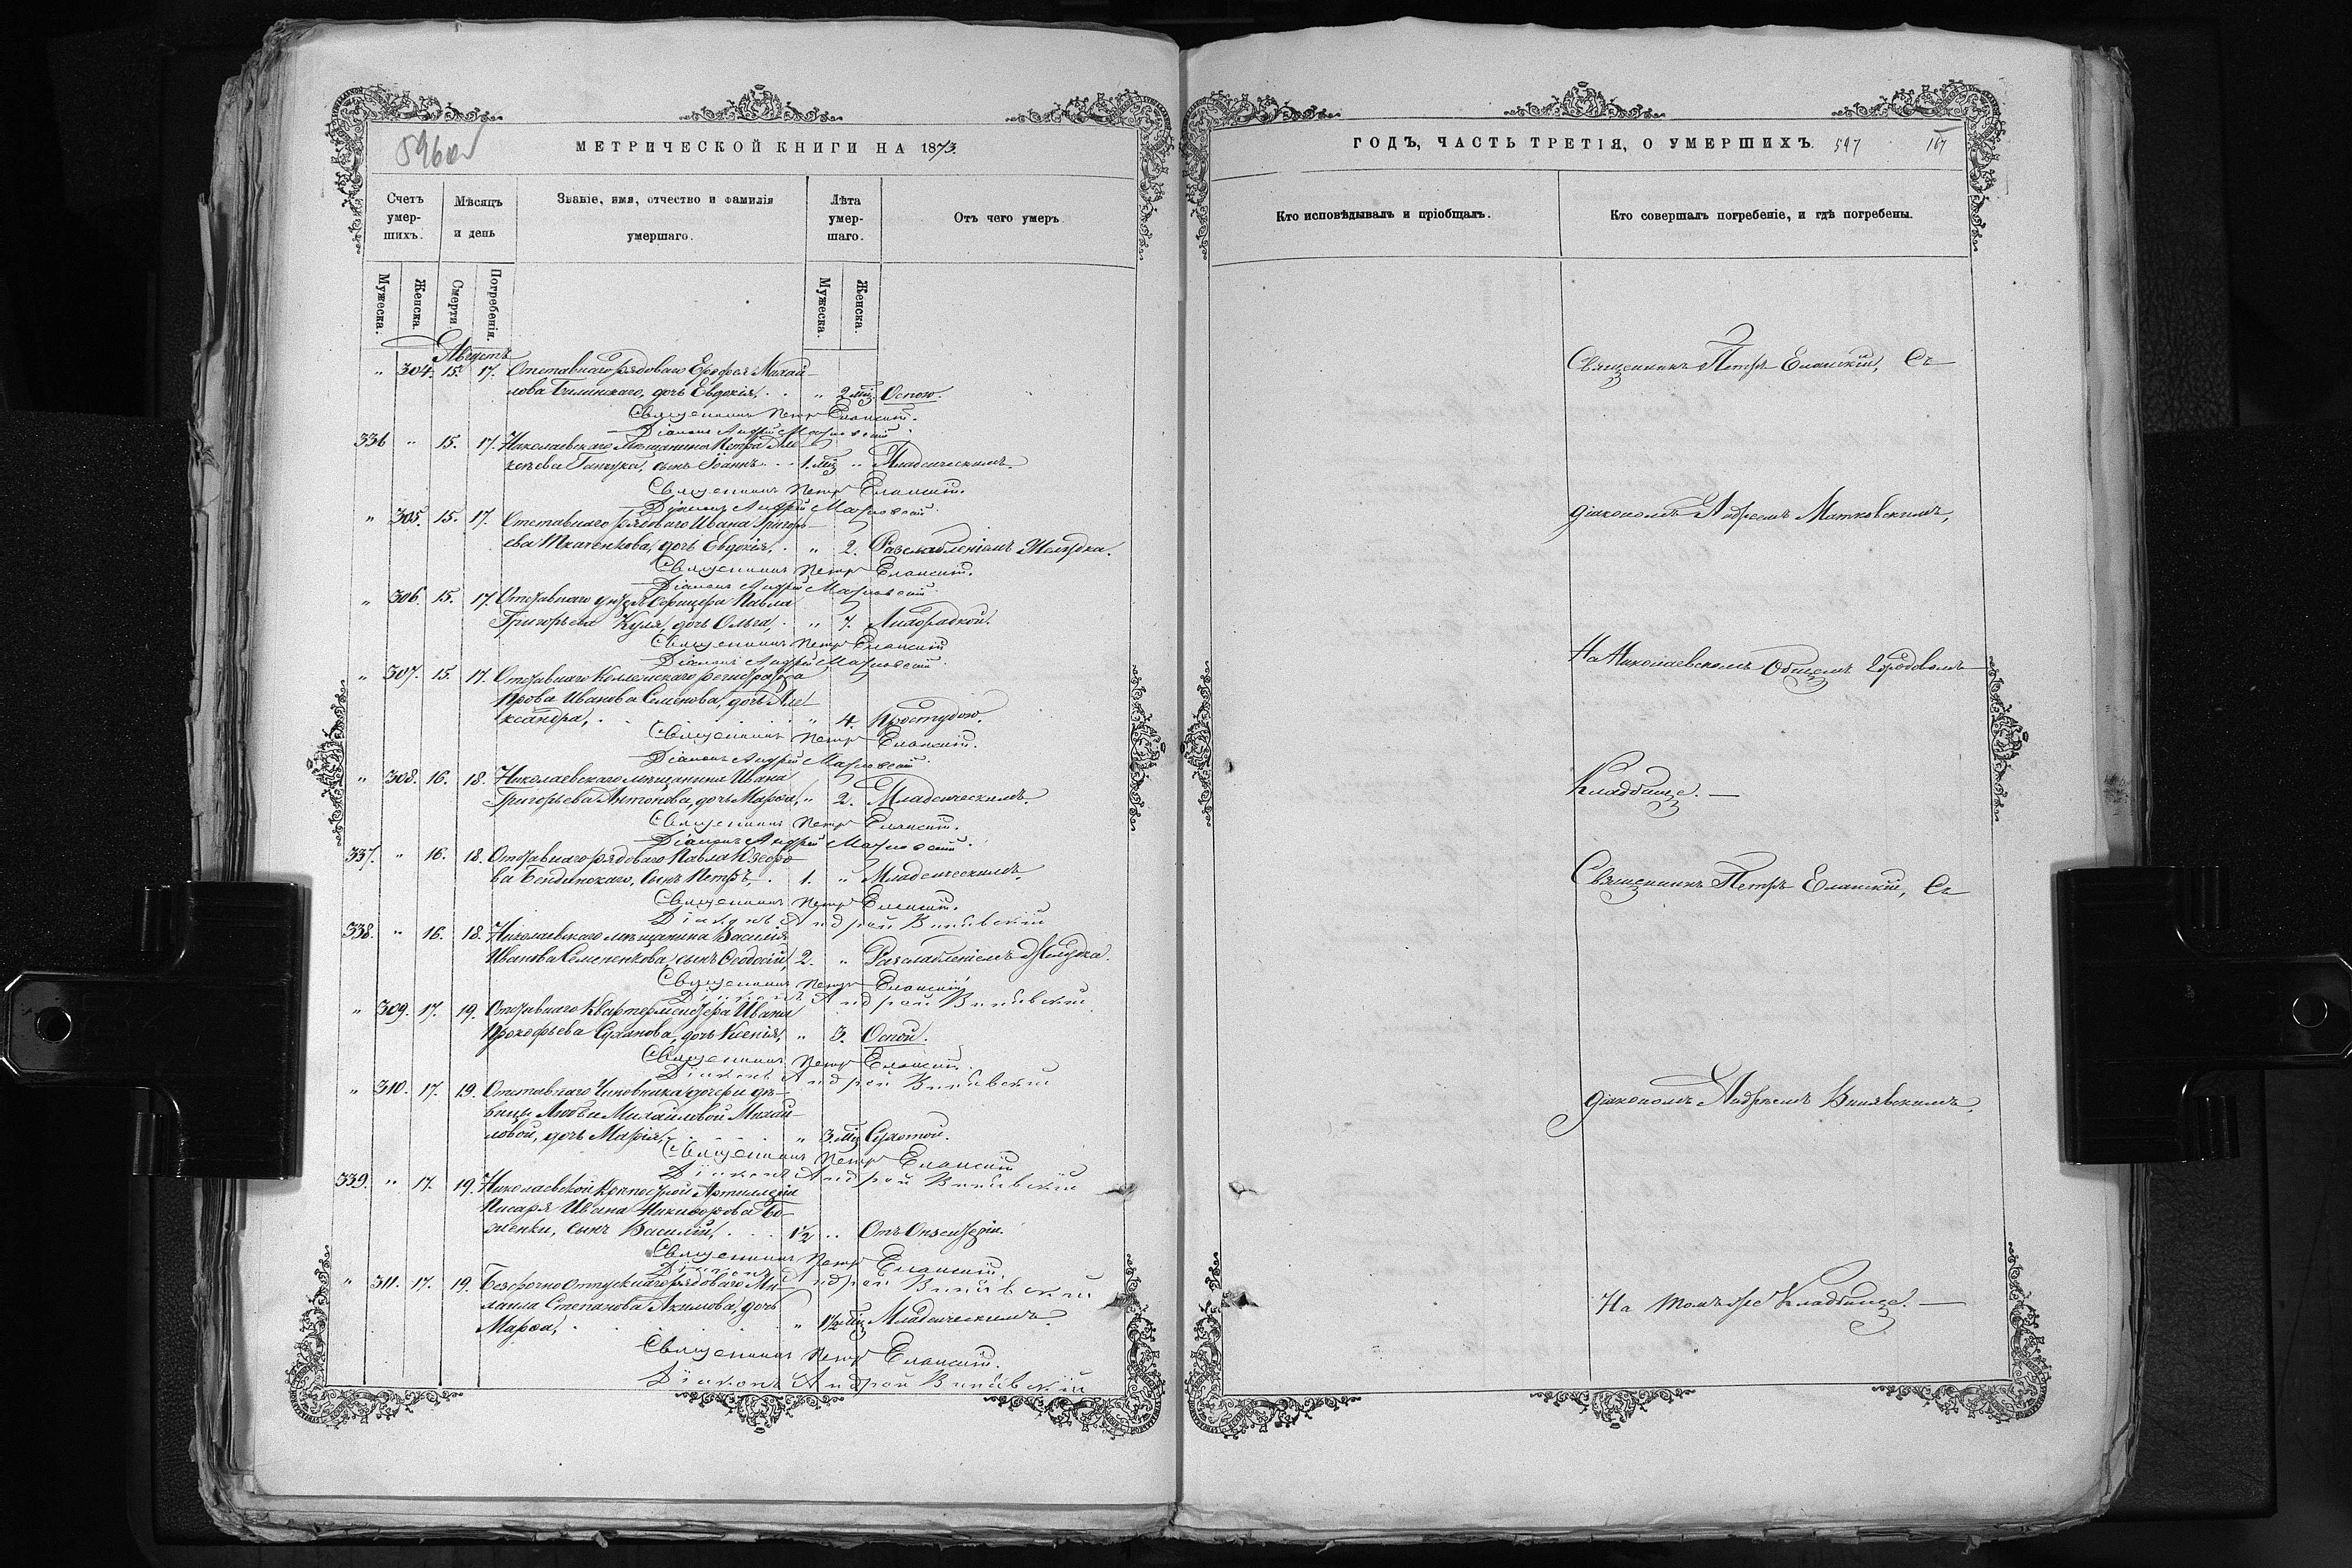 596об
МЕТРИЧЕСКОЙ КНИГИ НА 1873.
Счетъ умер-шихъ.
Мѣсяцъ и день
Званіе, имя, отчество и фамилія умершаго.
Лѣта умер-шаго.
Отъ чего умеръ.
Мужеска.
Женска.
Смерти.
Погребенія.
Мужеска.
Женска.
Августъ
" 304. 15. 17. Отставнаго рядоваго Ерофея Михай-
лова Билинскаго, дочь Евдокія, . . " 2 мѣс. Оспою.
Священникъ Петръ Еланскій.
Діаконъ Андрей Матковскій
336 " 15. 17. Николаевскаго Мѣщанина Петра Але-
ксѣева Ганжука, сынъ Іоаннъ . . 1. мѣс " Младенческимъ.
Священникъ Петръ Еланскій.
Діаконъ Андрей Матковскій
" 305. 15. 17. Отставнаго рядоваго Ивана Григорь-
ева Ткаченкова, дочь Евдокія, . " 2. Разслабленіемъ Желудка.
Священникъ Петръ Еланскій.
Діаконъ Андрей Матковскій
" 306. 15. 17. Отставнаго унтеръ Офицера Павла
Григорьева Куля, дочь Ольга, . " 7. Лихорадкой.
Священникъ Петръ Еланскій
Діаконъ Андрей Матковскій
" 307. 15. 17. Отставнаго Коллежскаго регистратора
Прова Иванова Семенова, дочь Але-
ксандра, . . . " 4. Простудою.
Священникъ Петръ Еланскій.
Діаконъ Андрей Матковскій
" 308. 16. 18. Николаевскаго мѣщанина Ивана
Григорьева Антонова, дочь Марѳа, " 2. Младенческимъ.
Священникъ Петръ Еланскій.
Діаконъ Андрей Матковскій.
337. " 16. 18. Отставнаго рядоваго Павла
ва сынъ Петръ, . 1. " Младенческимъ.
Священникъ Петръ Еланскій.
Діаконъ Андрей Винявскій
338. " 16. 18. Николаевскаго мѣщанина Василія
Иванова Семененкова, сынъ Ѳеодосій, 2. " Разслабленіемъ Желудка.
Священникъ Петръ Еланскій
Діаконъ Андрей Винявскій
" 309. 17. 19. Отставнаго Квартермейстера Ивана
Прокофьева Суханова, дочь Ксенія, " 3. Оспой.
Священникъ Петръ Еланскій
Діаконъ Андрей Винявскій
" 310. 17. 19. Отставнаго Чиновника дочери дѣ-
вицы Любви Михайловой Михай-
ловой, дочь Марія, . . . " 3. мѣс Сухотой.
Священникъ Петръ Еланскій
Діаконъ Андрей Винявскій
339. " 17. 19. Николаевской Крѣпостной Артиллеріи
Писаря Ивана Никифорова Бо-
женки, сынъ Василій, . . . 1½ "
Священникъ Петръ Еланскій.
Діаконъ Андрей Винявскій
" 311. 17. 19. Безсрочно Отпускнаго рядоваго Ми-
хаила Степанова Акимова, дочь
Марѳа, . . . " 1½ мѣс Младенческимъ.
Священникъ Петръ Еланскій.
Діаконъ Андрей Винявскій
ГОДЪ, ЧАСТЬ ТРЕТІЯ, О УМЕРШИХЪ.
597
167
Кто исповѣдывалъ и пріобщалъ.
Кто совершалъ погребеніе, и гдѣ погребены.
Священникъ Петръ Еланскій, Съ
діакономъ Андреемъ Матковскимъ,
На Николаевскомъ Общемъ Городовомъ
Кладбищѣ. —
Священникъ Петръ Еланскій, Съ
діакономъ Андреемъ Винявскимъ,
На томъ же Кладбищѣ. —